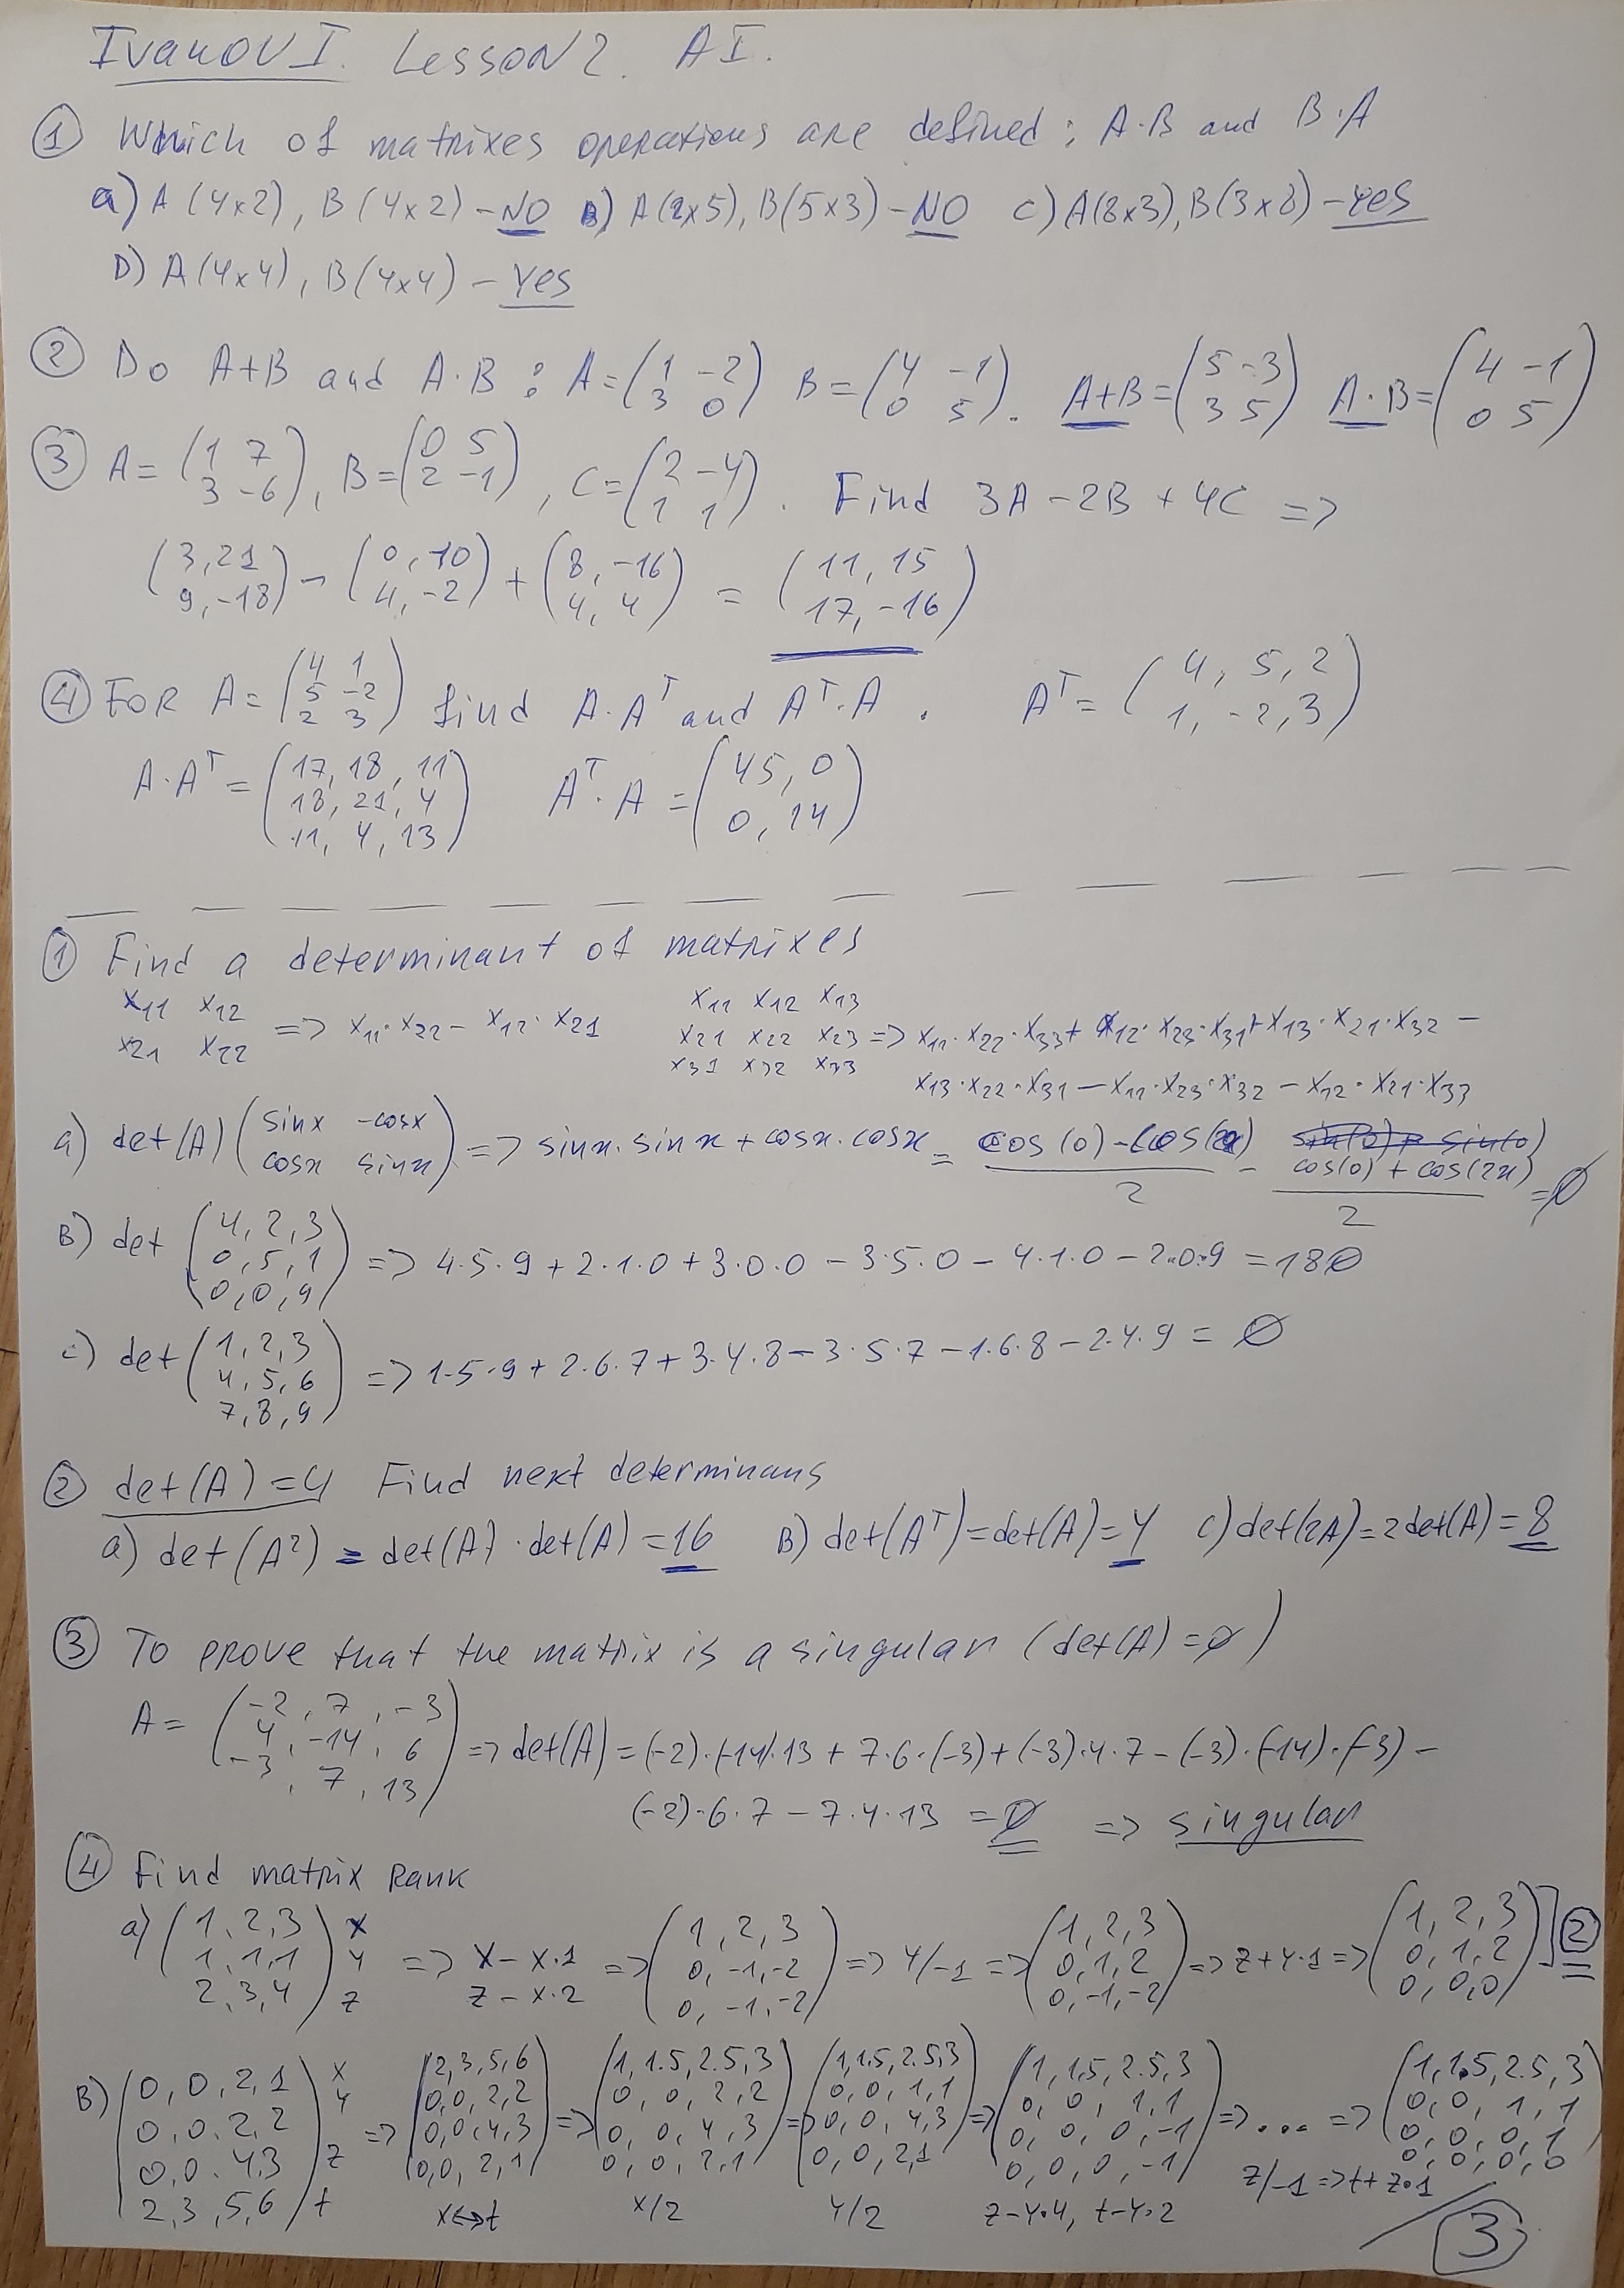 Ivanov I. Lesson 2. AI.
① Which of matrixes operations are defined: A·B and B·A
a) A(4x2), B(4x2) - NO B) A(2x5), B(5x3) - NO C) A(8x3), B(3x8) - Yes
D) A(4x4), B(4x4) - Yes
② Do A+B and A·B : A=(1 -2 / 3 0) B=(4 -1 / 0 5). A+B=(5 -3 / 3 5) A·B=(4 -1 / 0 5)
③ A=(1 7 / 3 -6), B=(0 5 / 2 -1), C=(2 -4 / 1 1). Find 3A-2B+4C =>
(3, 21 / 9, -18) - (0, 10 / 4, -2) + (8, -16 / 4, 4) = (11, 15 / 17, -16)
④ FOR A=(4 1 / 5 -2 / 2 3) find A·Aᵀ and Aᵀ·A. Aᵀ=(4, 5, 2 / 1, -2, 3)
A·Aᵀ=(17, 18, 11 / 18, 21, 4 / 11, 4, 13) Aᵀ·A=(45, 0 / 0, 14)
① Find a determinant of matrixes
x11 x12 x11 x12 x13
x21 x22 => x11·x22 - x12·x21 x21 x22 x23 => x11·x22·x33+x12·x23·x31+x13·x21·x32 -
x31 x32 x33 x13·x22·x31 - x11·x23·x32 - x12·x21·x33
a) det(A)(sinx -cosx / cosx sinx) => sinx·sinx + cosx·cosx = (cos(0)-cos(2x))/2 - (cos(0)+cos(2x))/2 = 0
B) det(4, 2, 3 / 0, 5, 1 / 0, 0, 9) => 4·5·9 + 2·1·0 + 3·0·0 - 3·5·0 - 4·1·0 - 2·0·9 = 180
c) det(1, 2, 3 / 4, 5, 6 / 7, 8, 9) => 1·5·9 + 2·6·7 + 3·4·8 - 3·5·7 - 1·6·8 - 2·4·9 = 0
② det(A)=4 Find next determinans
a) det(A²) = det(A)·det(A) = 16 B) det(Aᵀ)=det(A)=4 C) det(2A)=2det(A)=8
③ To prove that the matrix is a singular (det(A)=0)
A=(-2, 7, -3 / 4, -14, 6 / -3, 7, 13) => det(A)=(-2)·(-14)·13 + 7·6·(-3)+(-3)·4·7-(-3)·(-14)·(-3) -
(-2)·6·7 - 7·4·13 = 0 => singular
④ Find matrix Rank
a) (1, 2, 3 / 1, 1, 1 / 2, 3, 4) x y z => x - x·1 z - x·2 => (1, 2, 3 / 0, -1, -2 / 0, -1, -2) => y/-1 => (1, 2, 3 / 0, 1, 2 / 0, -1, -2) => z+y·1 => (1, 2, 3 / 0, 1, 2 / 0, 0, 0)] ②
B) (0, 0, 2, 1 / 0, 0, 2, 2 / 0, 0, 4, 3 / 2, 3, 5, 6) x y z t => (2, 3, 5, 6 / 0, 0, 2, 2 / 0, 0, 4, 3 / 0, 0, 2, 1) => (1, 1.5, 2.5, 3 / 0, 0, 2, 2 / 0, 0, 4, 3 / 0, 0, 2, 1) => (1, 1.5, 2.5, 3 / 0, 0, 1, 1 / 0, 0, 4, 3 / 0, 0, 2, 1) => (1, 1.5, 2.5, 3 / 0, 0, 1, 1 / 0, 0, 0, -1 / 0, 0, 0, -1) => ... => (1, 1.5, 2.5, 3 / 0, 0, 1, 1 / 0, 0, 0, 1 / 0, 0, 0, 0)
x<->t x/2 y/2 z-y·4, t-y·2 z/-1 => t+z·1
③